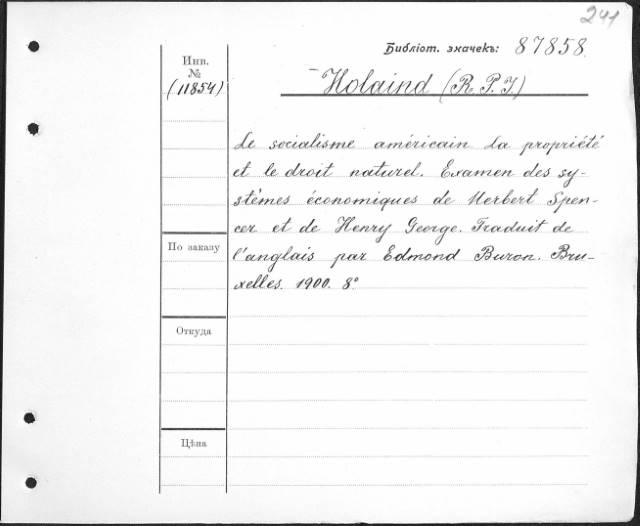 241
Библіот. значекъ: 87858.
Инв.
№
(11854)
Holaind (R. P. J.)
Le socialisme américain La propriété
et le droit naturel. Examen des sy-
stèmes économiques de Herbert Spen-
cer et de Henry George. Traduit de
l'anglais par Edmond Buron. Bru-
xelles. 1900. 8°
По заказу
Откуда
Цѣна